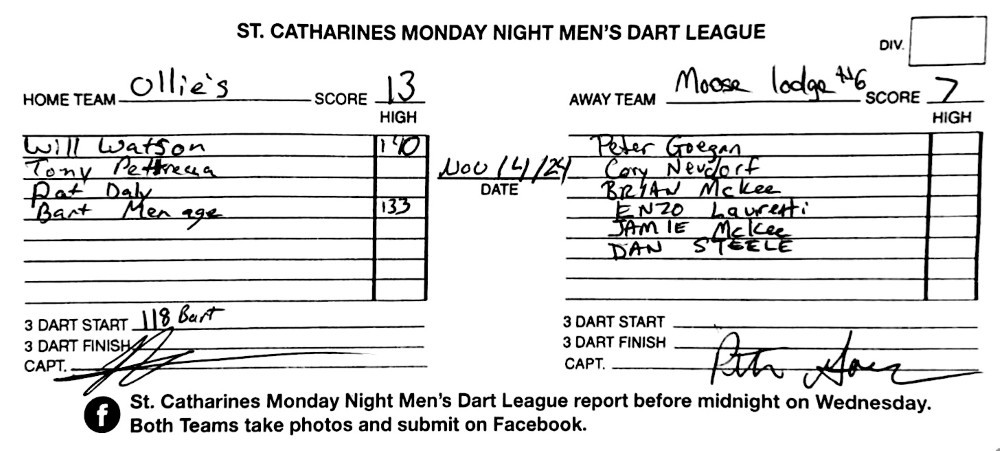 ST. CATHARINES MONDAY NIGHT MEN'S DART LEAGUE
DIV.
HOME TEAM Ollie's SCORE 13
HIGH
Will Watson 140
Tony Pettrecca
Pat Daly
Bart Menage 133
3 DART START 118 Bart
3 DART FINISH
CAPT.
Nov 14/24
DATE
AWAY TEAM Moose lodge #6 SCORE 7
HIGH
Peter Goegan
Cory Neudorf
BRYAN McKee
ENZO Lauretti
JAMIE McKee
DAN STEELE
3 DART START
3 DART FINISH
CAPT.
f St. Catharines Monday Night Men's Dart League report before midnight on Wednesday.
Both Teams take photos and submit on Facebook.